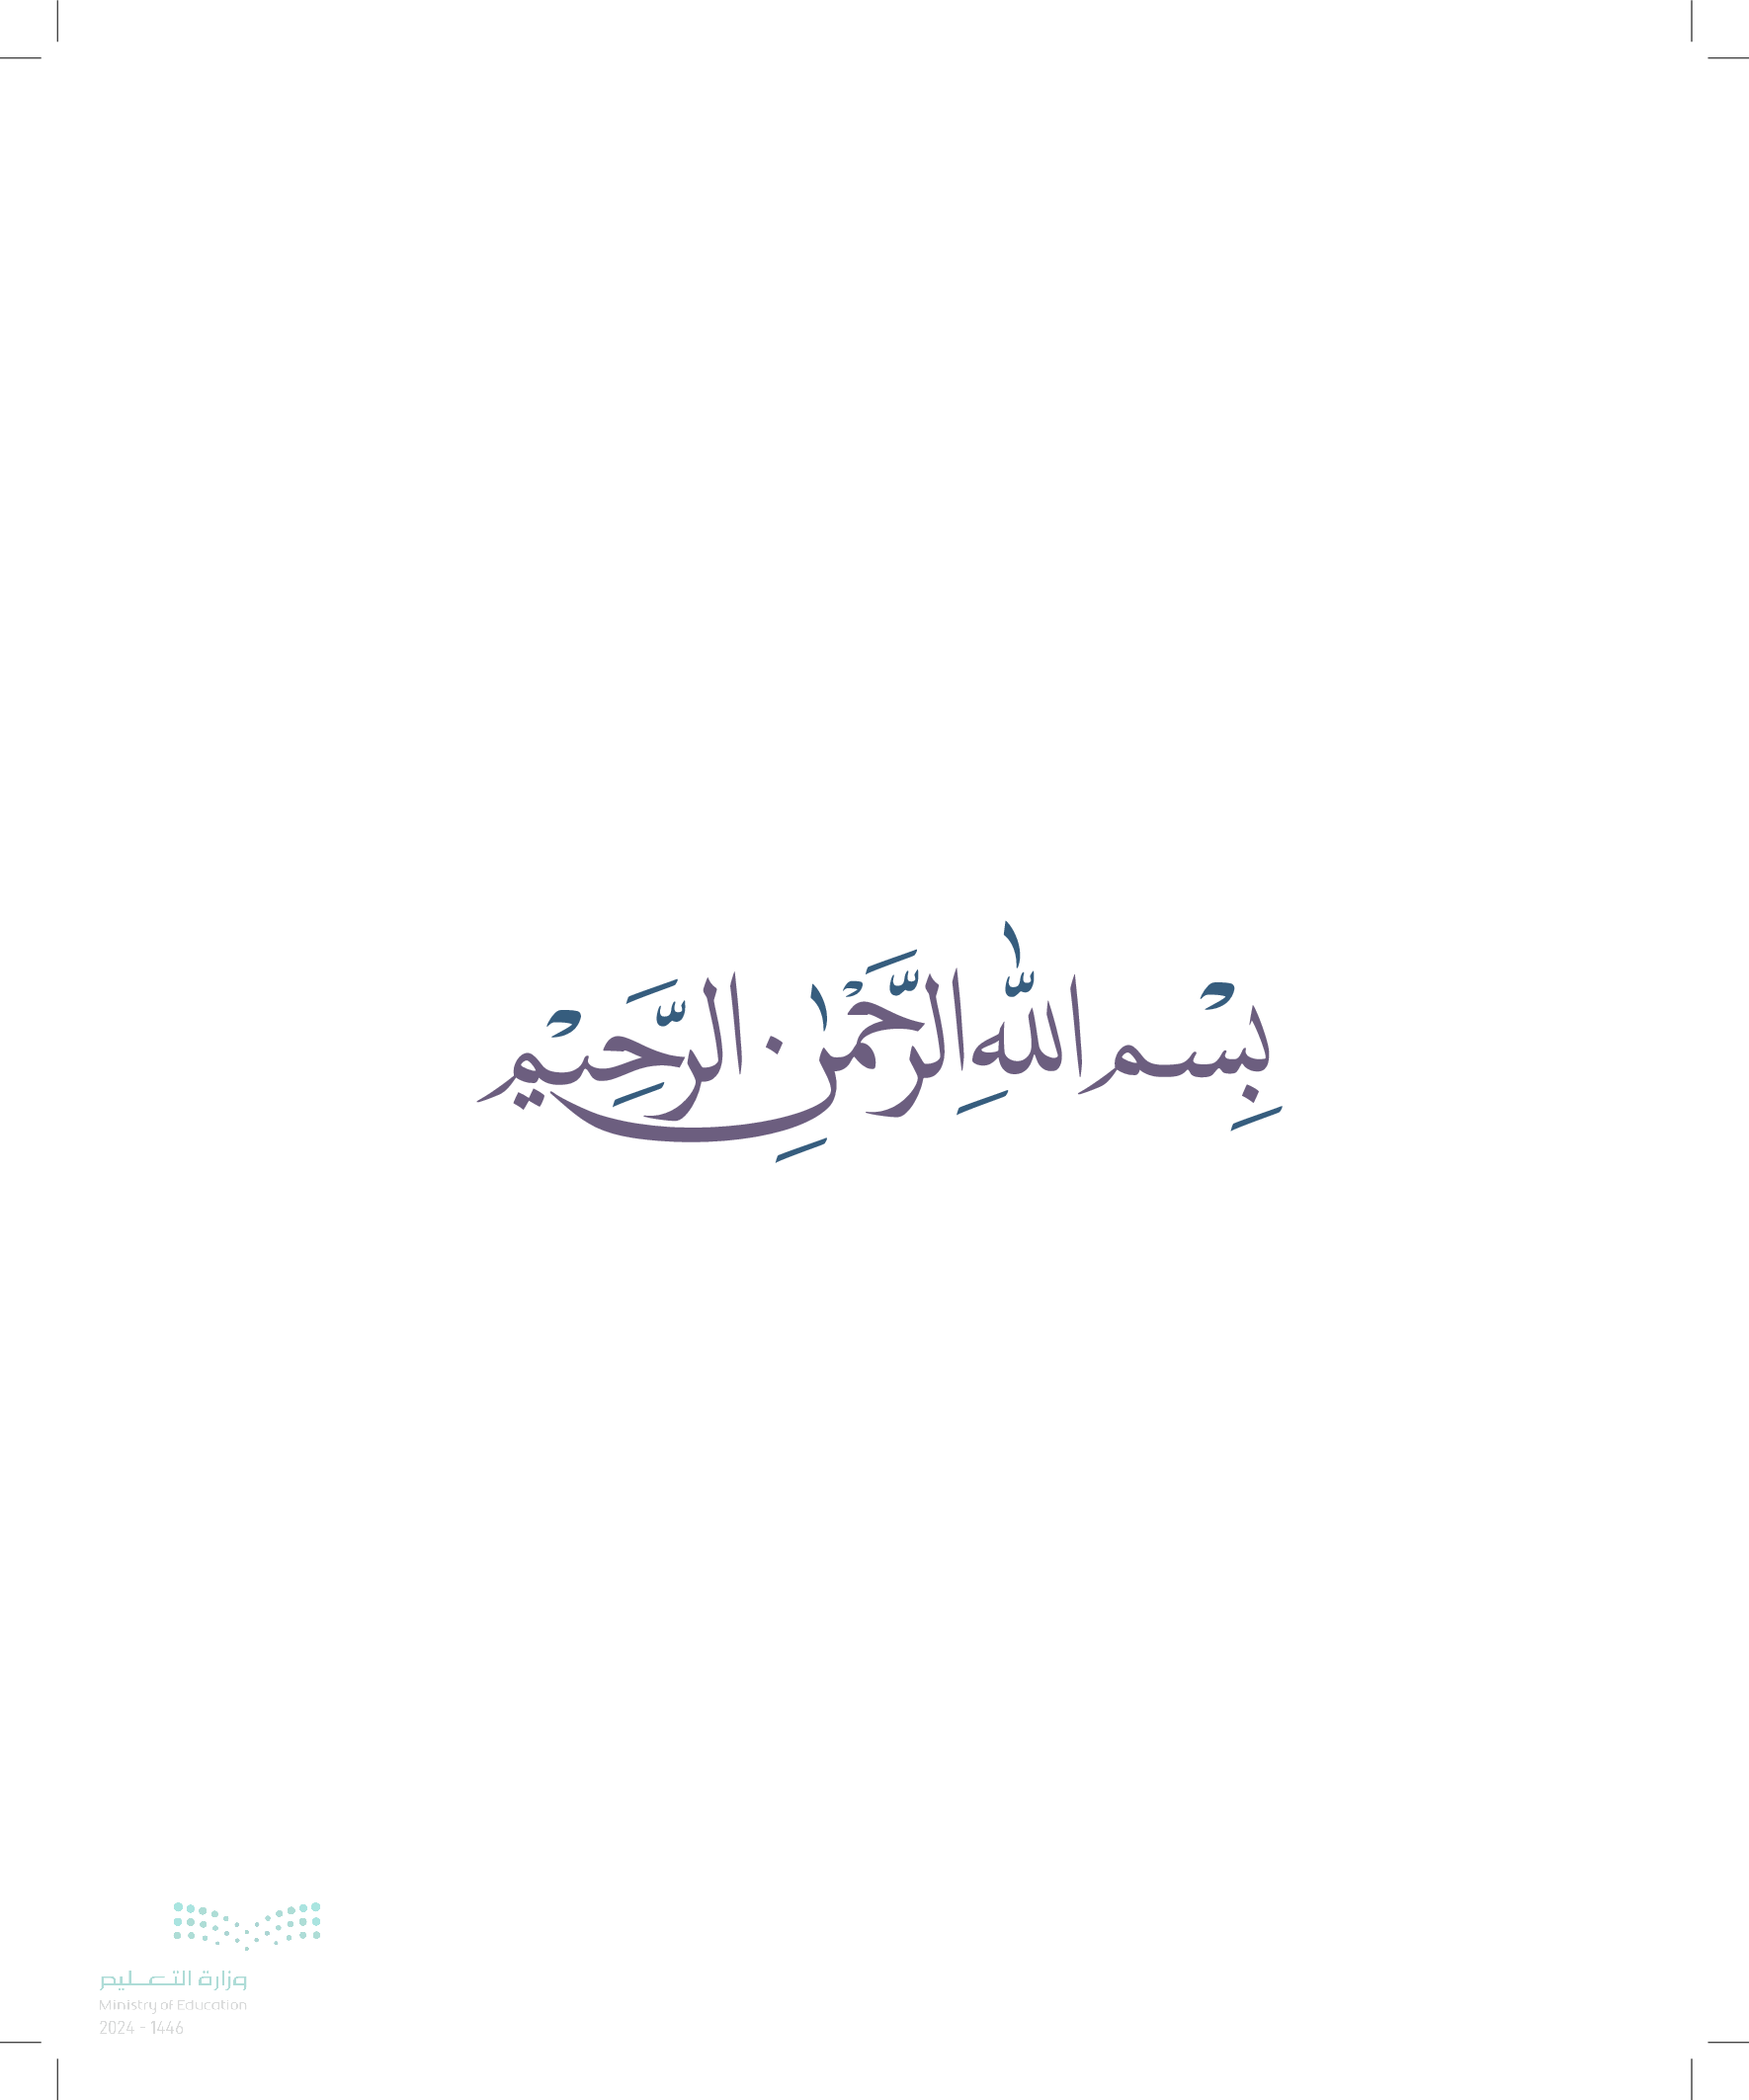 بِسْمِ اللّٰهِ الرَّحْمٰنِ الرَّحِيْمِ
وزارة التعليم
Ministry of Education
2024 - 1446